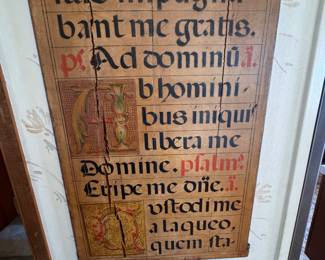 impugna
bant me gratis.
ps. Ad dominū. ā.
Abhomini-
bus iniquis
libera me
Domine. psalmꝰ.
Eripe me dñe. ā.
Custodi me
a laqueo,
quem sta-